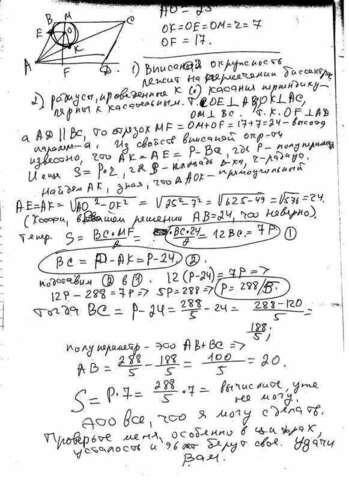 B M C
E
K
A F D
AO = 25
OK=OE=OM=r=7
OF=17.
1) Вписанная окружность
лежит на пересечении биссектр.
2) радиусы, проведенные к (·) касания перпендику-
лярны к касательным. Т.е. OE⊥AB, OK⊥AC,
OM⊥BC. Т.к. OF⊥AD
а AD∥BC, то отрезок MF=OM+OF=17+7=24 - высота
паралл-а. Из свойств вписанной окр-ти
известно, что AK=AE=P-BC, где P - полупериметр
и еще S=P·r, где S - площадь Δ-ка, r - радиус.
Найдем AK, зная, что ΔAOK - прямоугольный
AE=AK=√AO²-OK² = √25²-7² = √625-49 = √576=24.
(Кстати, в вашем решении AB=24, что неверно).
Теперь S = BC·MF/2 = BC·24/2 = 12BC = 7P ①
BC = P - AK = P-24 ②.
подставим ② в ①. 12(P-24)=7P =>
12P-288=7P => 5P=288 => P=288/5.
Тогда BC = P-24 = 288/5 - 24 = 288-120/5 =
188/5
полупериметр - это AB+BC =>
AB = 288/5 - 188/5 = 100/5 = 20.
S = P·7 = 288/5 · 7 = Вычислите, уже
не могу.
Это все, что я могу сделать.
Проверьте меня, особенно в цифрах,
усталость и берут свое. Удачи
Вам.